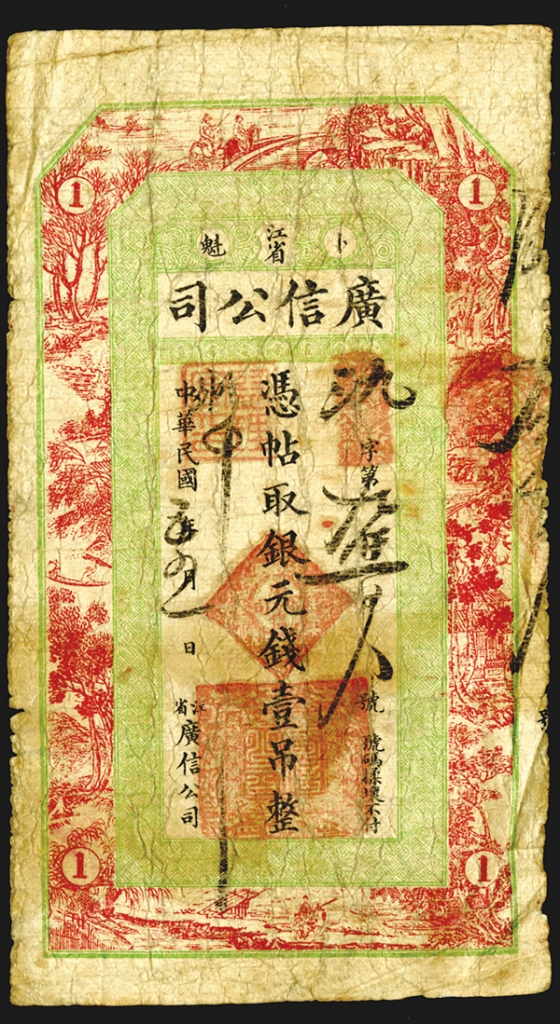 1 1
卜 江省 魁
廣信公司
字第 號
號碼揉壞不付
憑帖取銀元錢壹吊整
中華民國 年 月 日
江省廣信公司
1 1